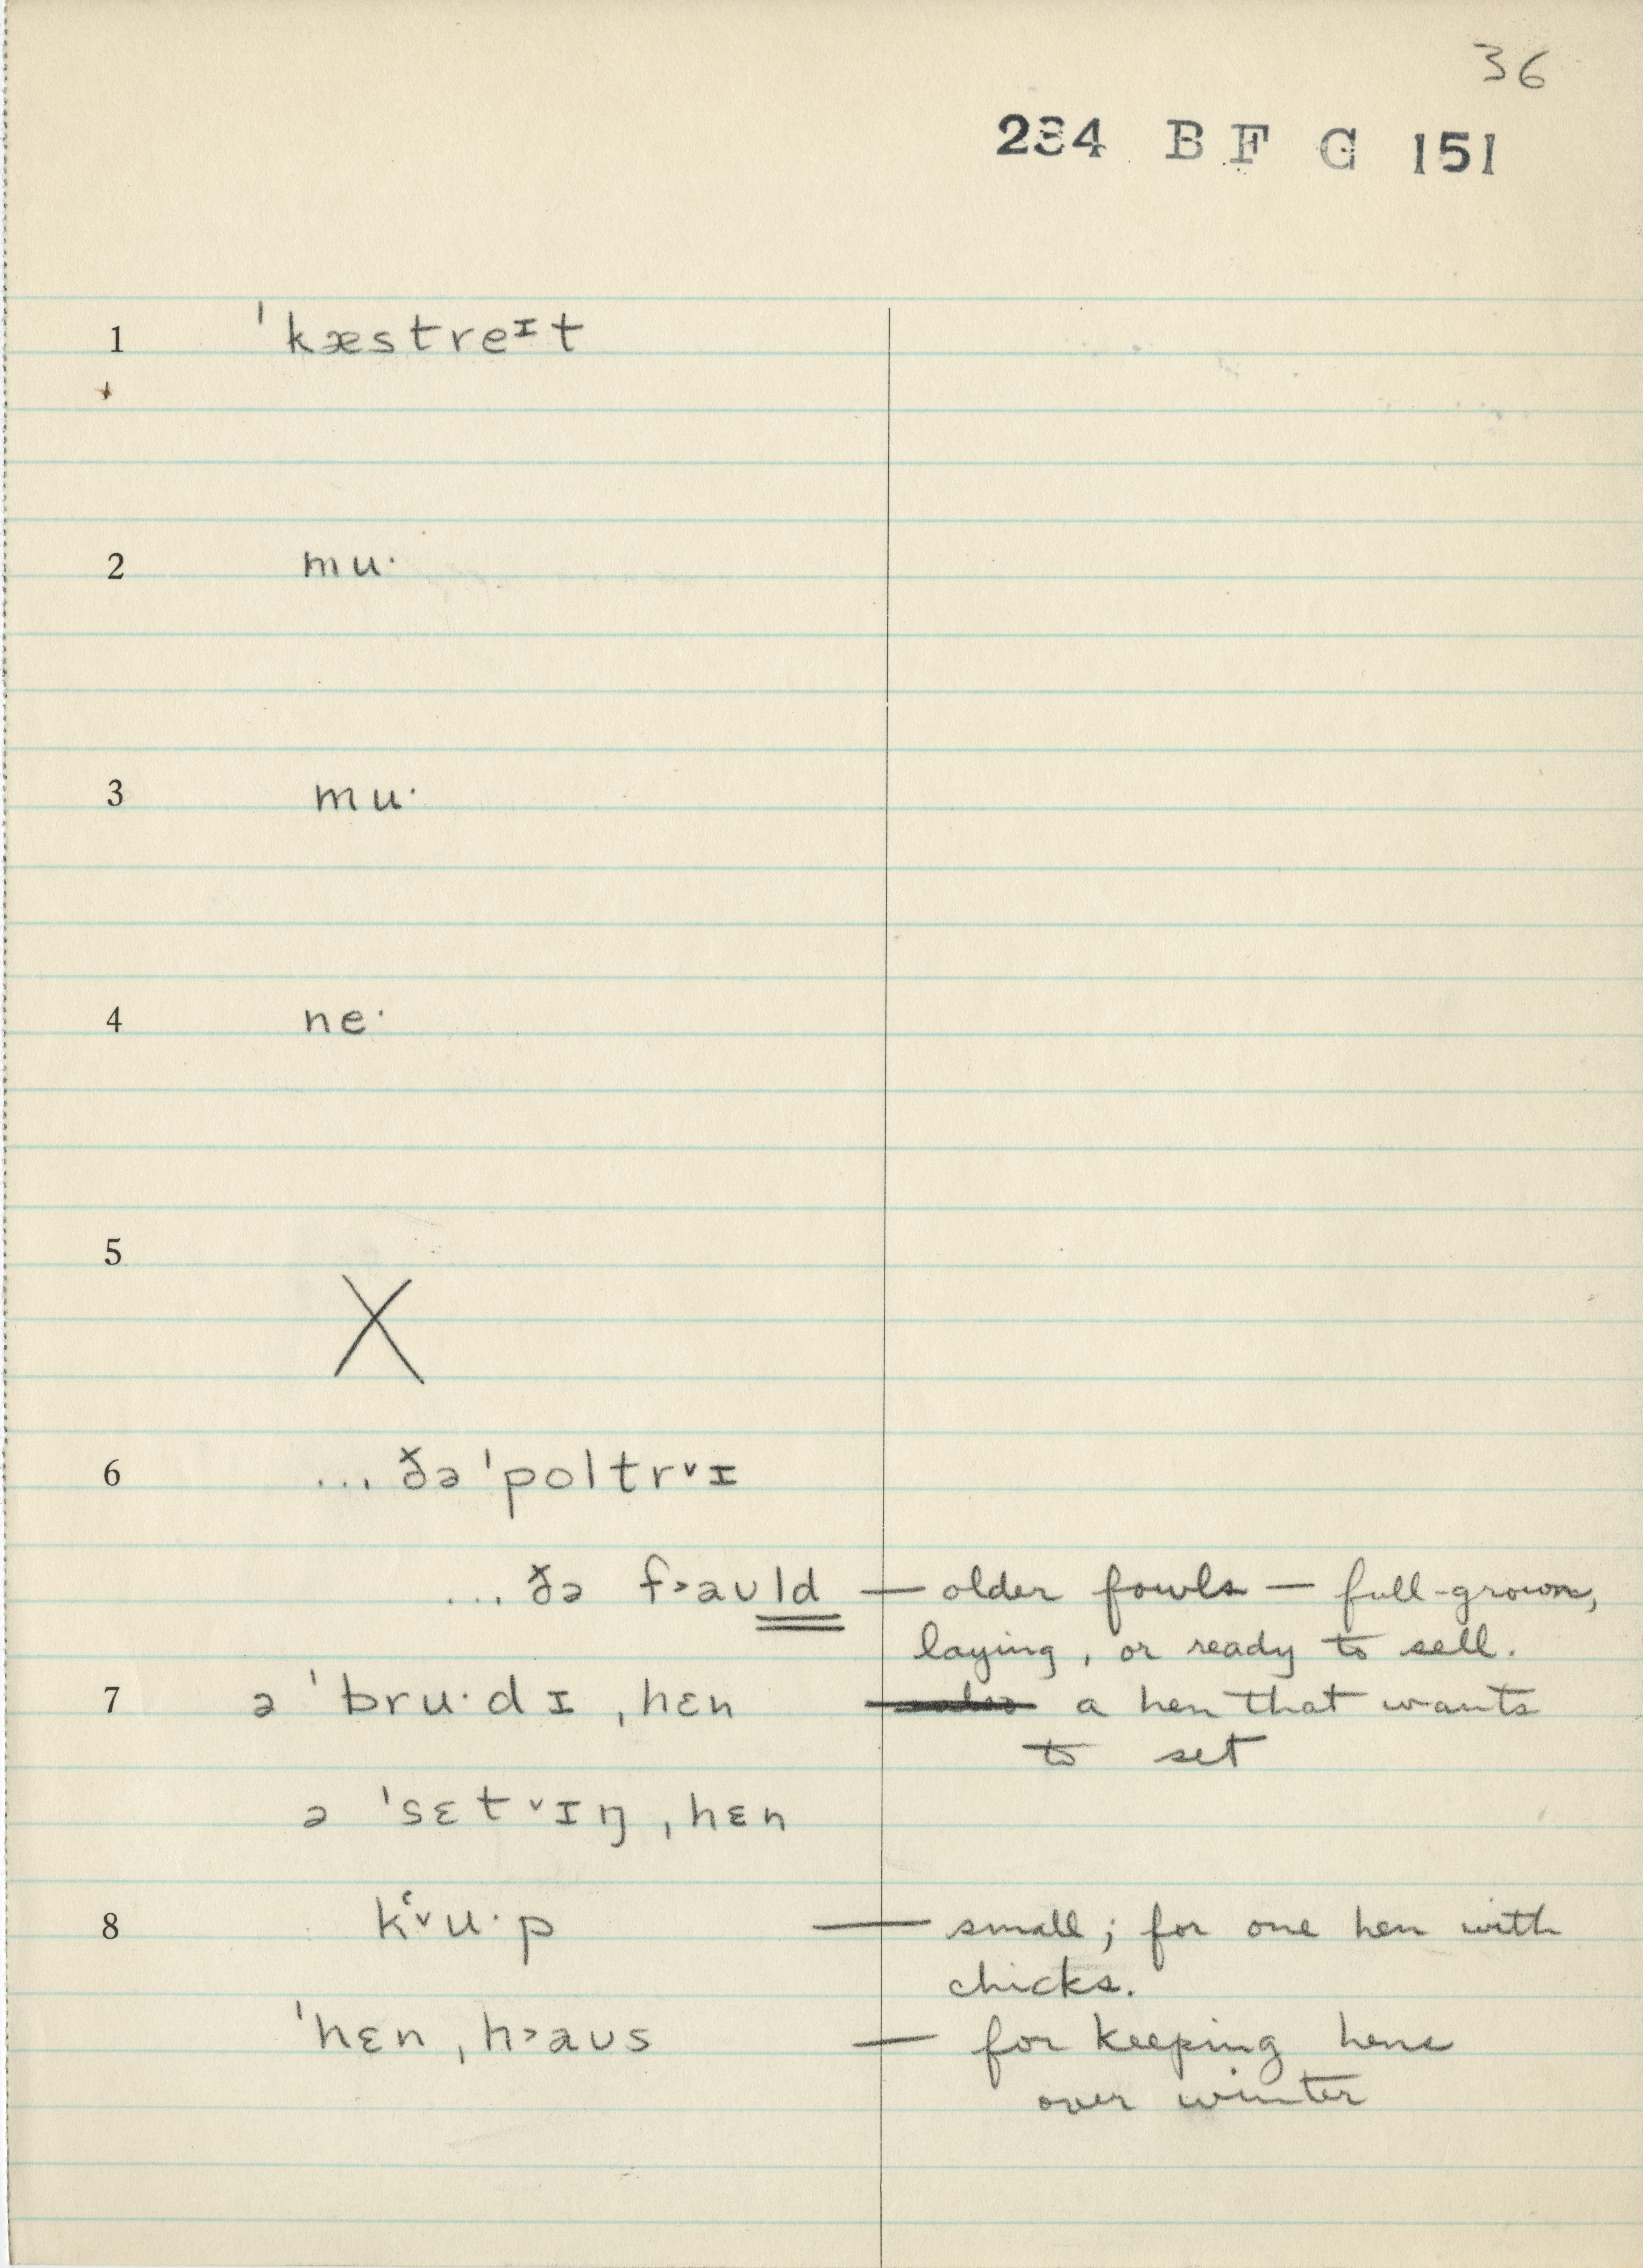 36
234 B F C 151
1 ˈkæstreᶦt
2 mu·
3 mu·
4 ne·
5 X
6 ... ðə ˈpoltr˅ɪ
... ðə f˃aʊld — older fowls — full-grown,
laying, or ready to sell.
7 ə ˈbru·dɪ ˌhɛn a hen that wants
to set
ə ˈsɛt˅ɪŋ ˌhɛn
8 kʻ˅u·p — small; for one hen with
chicks.
ˈhɛn ˌh˃aʊs — for keeping hens
over winter